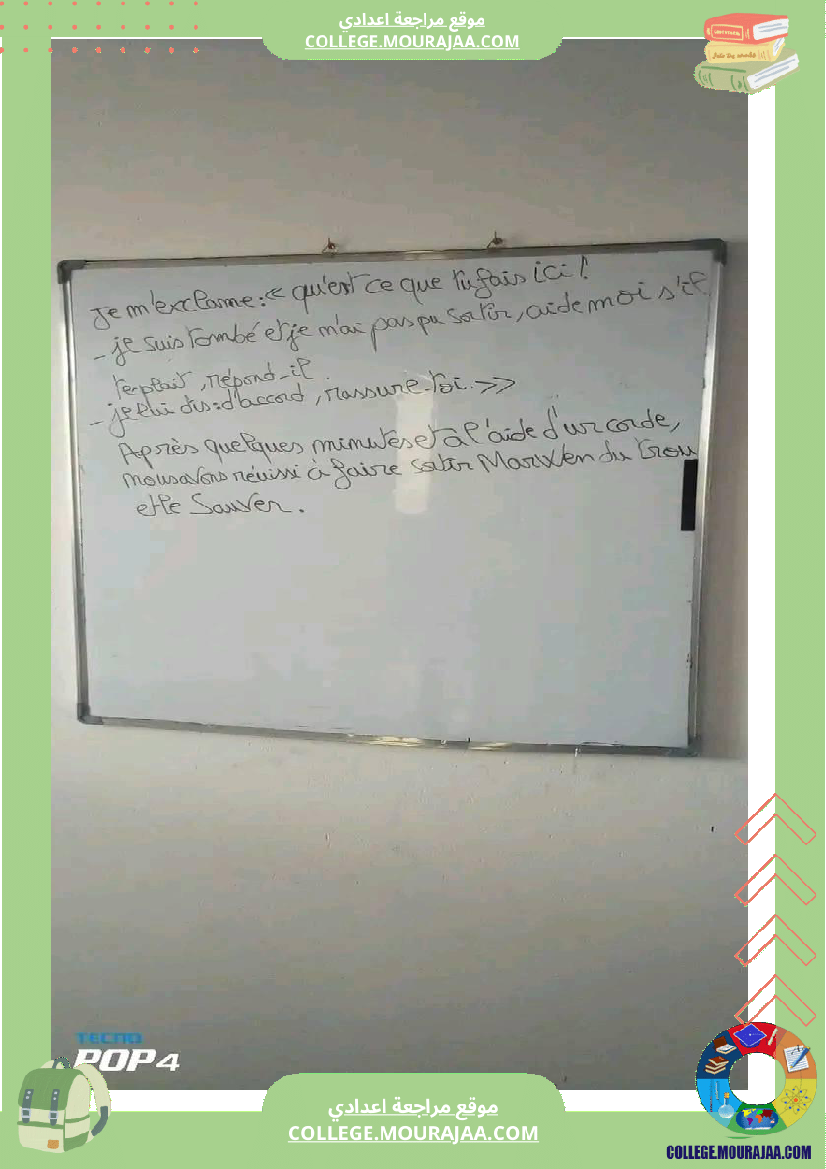 موقع مراجعة اعدادي
COLLEGE.MOURAJAA.COM
Je m'exclame : << qu'est ce que tu fais ici !
- je suis tombé et je n'ai pas pu sortir, aide moi s'il
te plait, répond-il.
- je lui dis : d'accord, rassure-toi. >>
Après quelques minutes et à l'aide d'un corde,
nous avons réussi à faire sortir Marwen du trou
et le sauver.
TECNO
POP 4
موقع مراجعة اعدادي
COLLEGE.MOURAJAA.COM
COLLEGE.MOURAJAA.COM